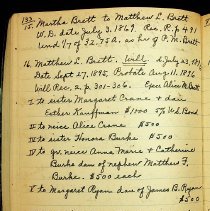 132
15. Martha Brett to Matthew L. Brett
W.D. date July 3, 1869. Rec. R. p 491
Und 1/7 of 32.75 A. as her of P.M. Brett
16. Matthew L. Brett. Will.
Date Sept 27, 1895. Probate Aug 11, 1896
Will Rec. 2, p. 301-306. Exec Alice M. Brett
I to sister Margaret Crane + dau
Esther Kauffman $1000
II to niece Alice Crane $500
III to sister Honora Burke $500
IV to gr. niece Anna Marie + Catherine
Burke dau of nephew Matthew F.
Burke. $500 each
V to Margaret Ryan dau of James B. Ryan
$500